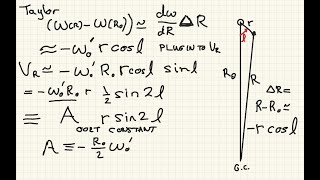 Taylor
(ω(R)-ω(R₀)) ≃ dω/dR ΔR
≈ -ω₀' r cosl PLUG IN TO V_R
V_R ≃ -ω₀' R₀ r cosl sinl
= -ω₀' R₀ r ½ sin2l
≡ A r sin2l
OORT CONSTANT
A ≡ -R₀/2 ω₀'
r
l
R₀
R
ΔR =
R-R₀ ≃
-r cosl
G.C.